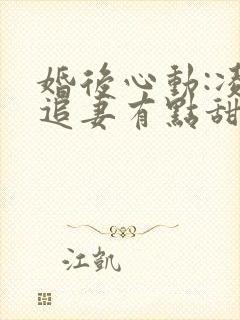 婚後心動:凌
追妻有點甜
江凱